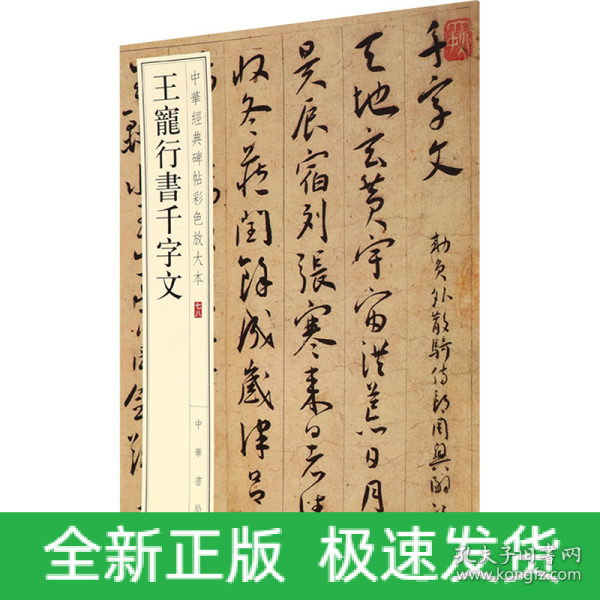 千字文
勅員外散騎侍郎周興嗣
天地玄黃宇宙洪荒日月
昃辰宿列張寒来暑往
收冬藏閏餘成歲律呂
中華經典碑帖彩色放大本
七八
王寵行書千字文
中華書局
全新正版 极速发货
孔夫子旧书网
www.kongfz.com